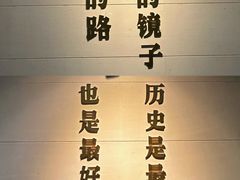 的镜子
的路
历史是最
也是最好